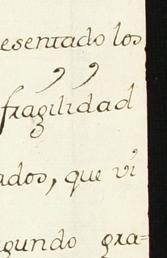 esentado los
fragilidad
ados, que vi
gundo gra=